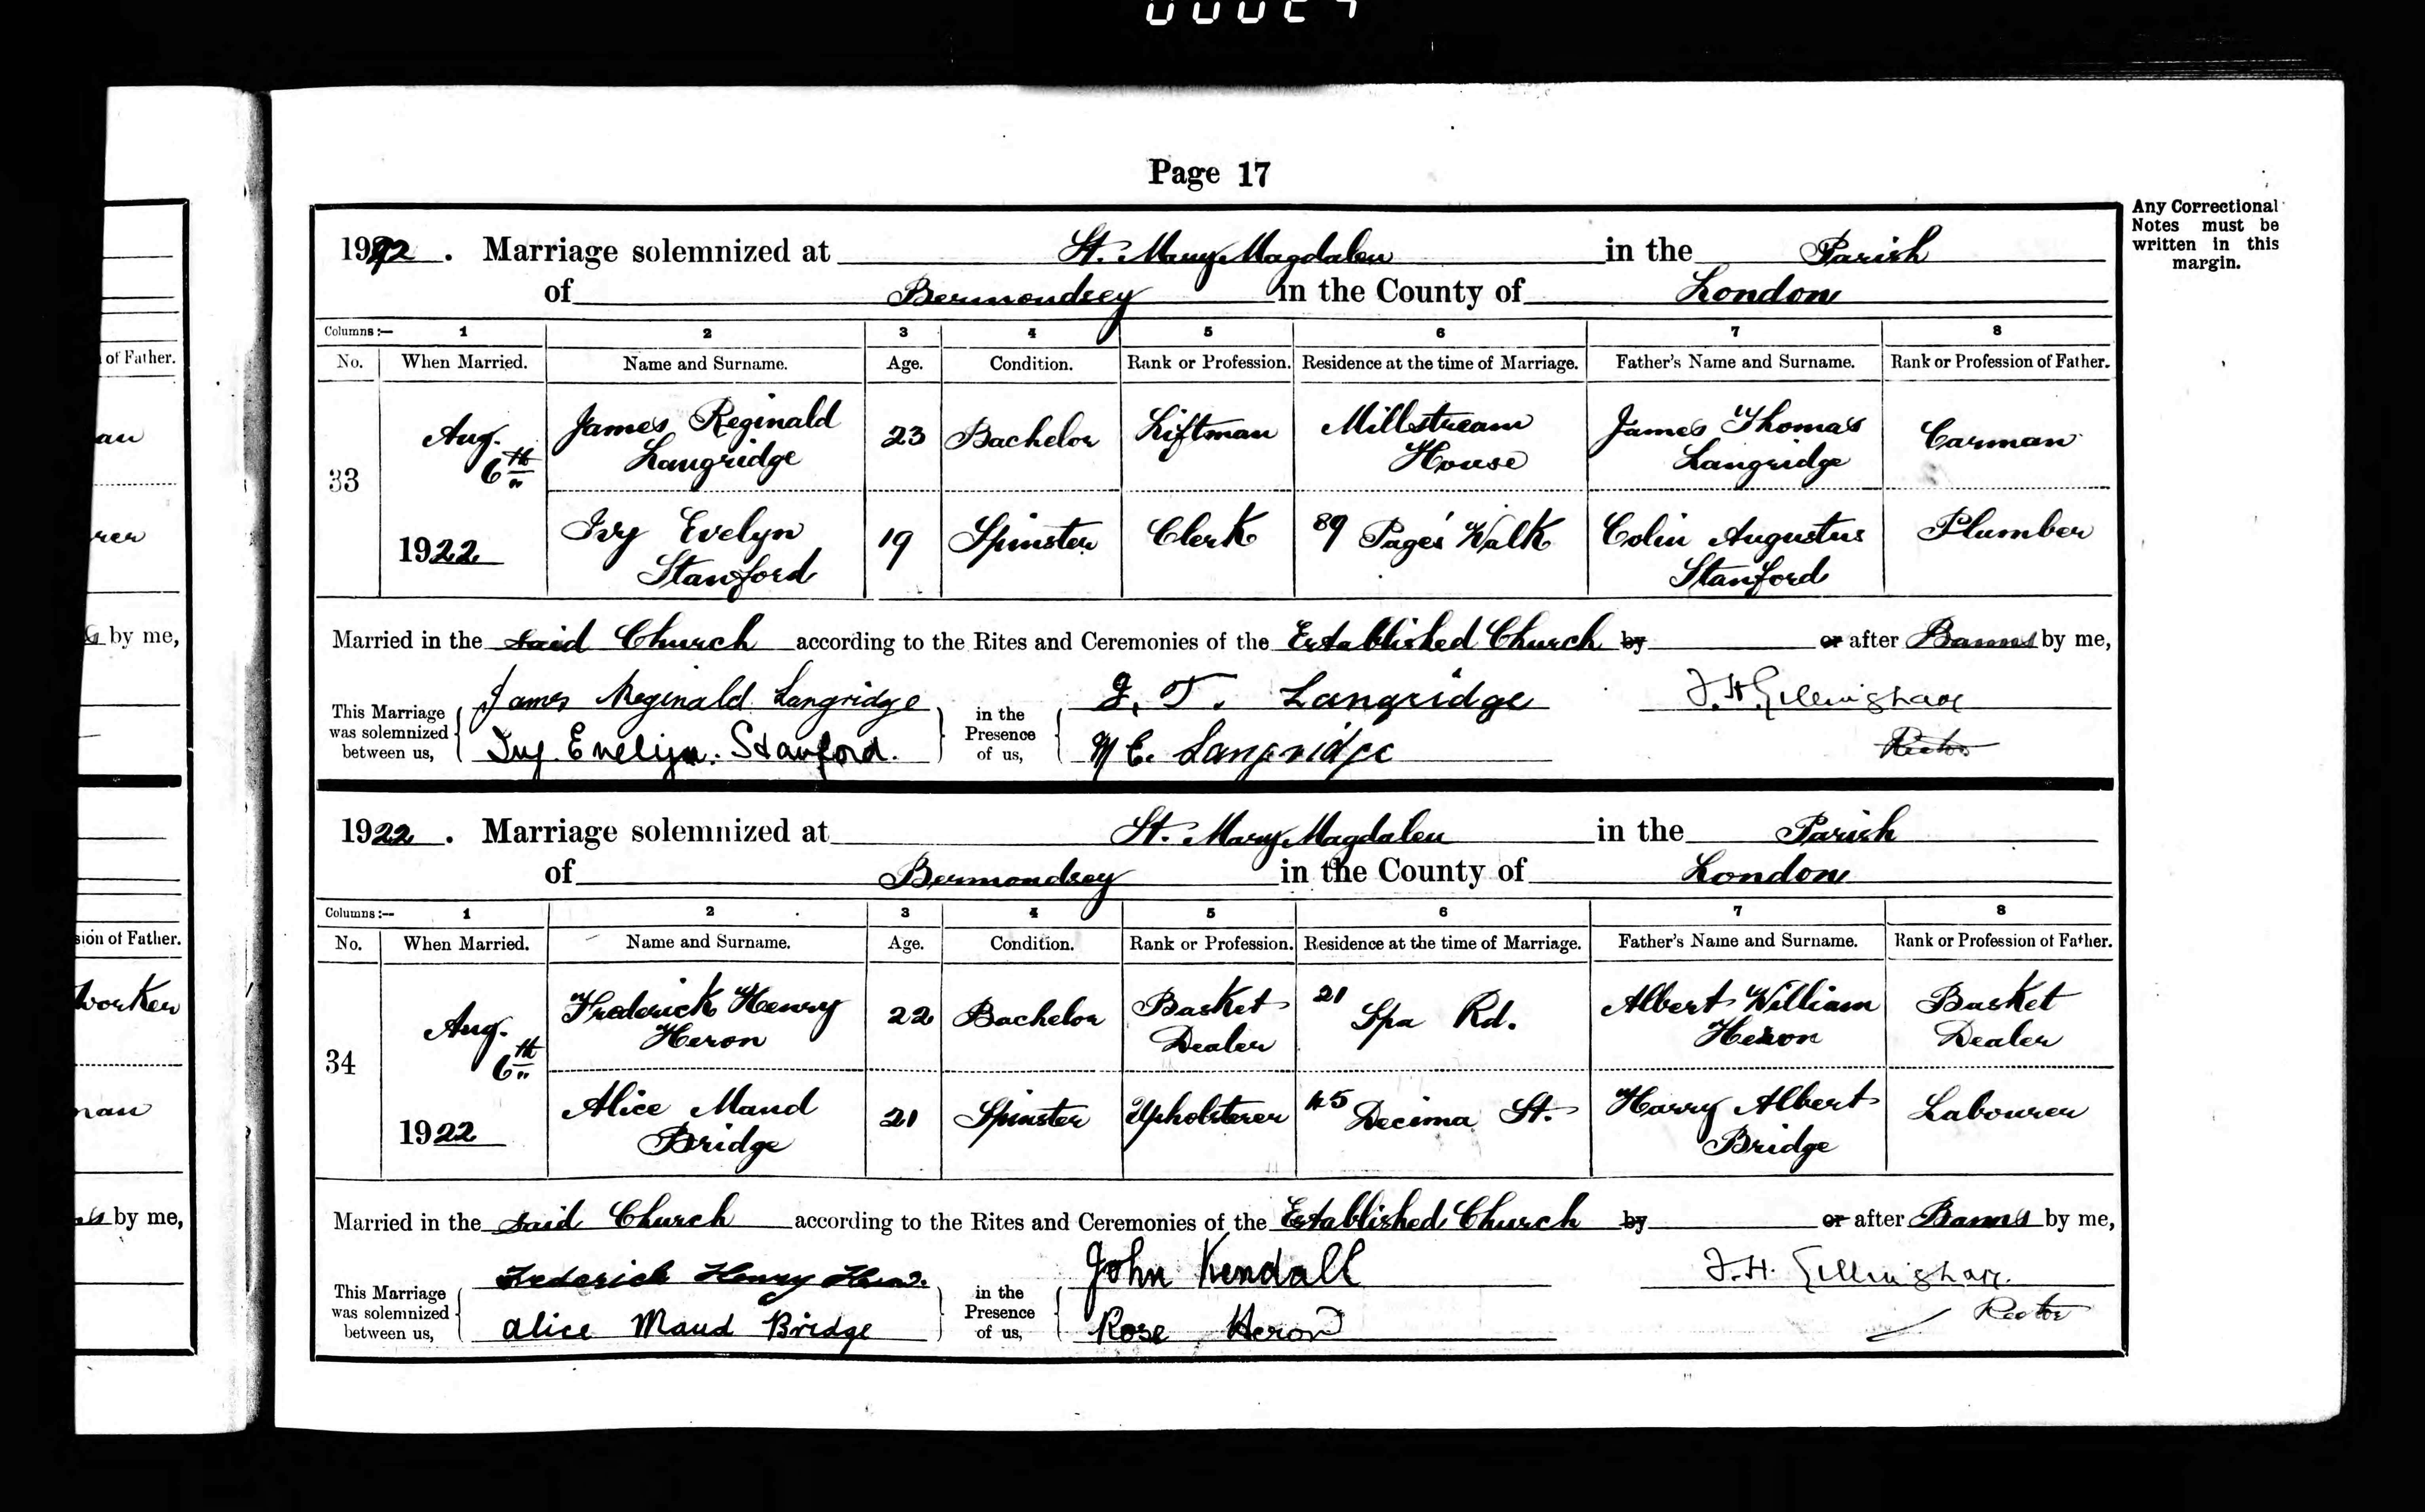 Page 17
Any Correctional
Notes must be
written in this
margin.
1922. Marriage solemnized at St. Mary Magdalen in the Parish
of Bermondsey in the County of London
Columns:— 1 2 3 4 5 6 7 8
No. When Married. Name and Surname. Age. Condition. Rank or Profession. Residence at the time of Marriage. Father's Name and Surname. Rank or Profession of Father.
33 Aug. 6th 1922
James Reginald Langridge 23 Bachelor Liftman Millstream House James Thomas Langridge Carman
Ivy Evelyn Stanford 19 Spinster Clerk 89 Page's Walk Colin Augustus Stanford Plumber
Married in the said Church according to the Rites and Ceremonies of the Established Church by or after Banns by me,
This Marriage was solemnized between us, James Reginald Langridge in the Presence of us, J. T. Langridge F.H. Gillingham
Ivy. Evelyn. Stanford. M C. Langridge Rector
1922. Marriage solemnized at St. Mary Magdalen in the Parish
of Bermondsey in the County of London
Columns:— 1 2 3 4 5 6 7 8
No. When Married. Name and Surname. Age. Condition. Rank or Profession. Residence at the time of Marriage. Father's Name and Surname. Rank or Profession of Father.
34 Aug. 6th 1922
Frederick Henry Heron 22 Bachelor Basket Dealer 21 Spa Rd. Albert William Heron Basket Dealer
Alice Maud Bridge 21 Spinster Upholsterer 45 Decima St. Harry Albert Bridge Labourer
Married in the said Church according to the Rites and Ceremonies of the Established Church by or after Banns by me,
This Marriage was solemnized between us, Frederick Henry Heron. in the Presence of us, John Kendall F.H. Gillingham
Alice Maud Bridge Rose Heron Rector
of Father.
by me,
sion of Father.
worker
by me,